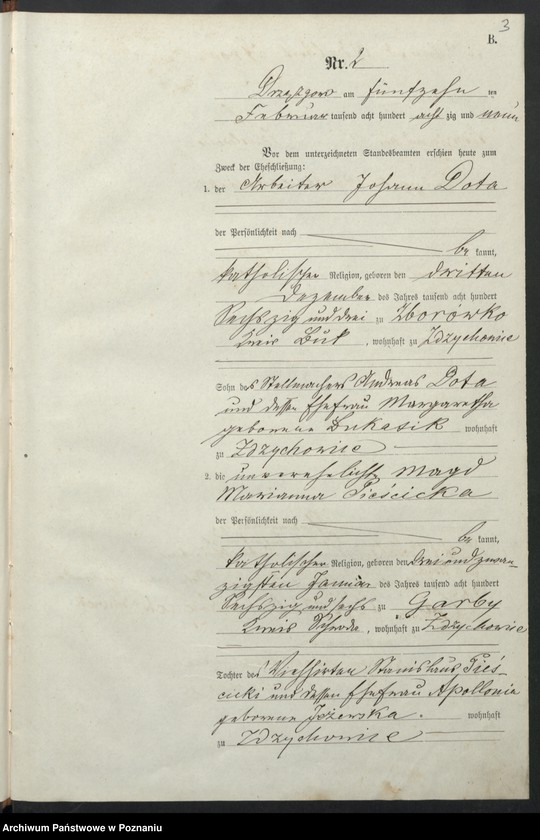 3
B.
Nr. 2
am fünfzehn ten
Februar tausend acht hundert acht zig und neun
Vor dem unterzeichneten Standesbeamten erschien heute zum
Zweck der Eheschließung:
1. der Arbeiter Johann Dota
der Persönlichkeit nach
be kannt,
katholischer Religion, geboren den dritten
Dezember des Jahres tausend acht hundert
Sechszig und drei zu Zborówko
Kreis Buk, wohnhaft zu Zdzychowice
Sohn des Stellmachers Andreas Dota
und dessen Ehefrau Margaretha
geborene wohnhaft
zu Zdzychowice
2. die unverehelichte Magd
Marianna Pieścicka
der Persönlichkeit nach
be kannt,
katholischer Religion, geboren den drei und zwan-
zigsten Januar des Jahres tausend acht hundert
Sechszig und sechs zu Garby
Kreis Schroda, wohnhaft zu Zdzychowice
Tochter des Viehhirten Stanislaus Pieś-
cicki und dessen Ehefrau Apollonia
geborene wohnhaft
zu Zdzychowice
Archiwum Państwowe w Poznaniu